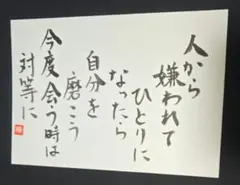 人から
嫌われて
ひとりに
なったら
自分を
磨こう
今度会う時は
対等に